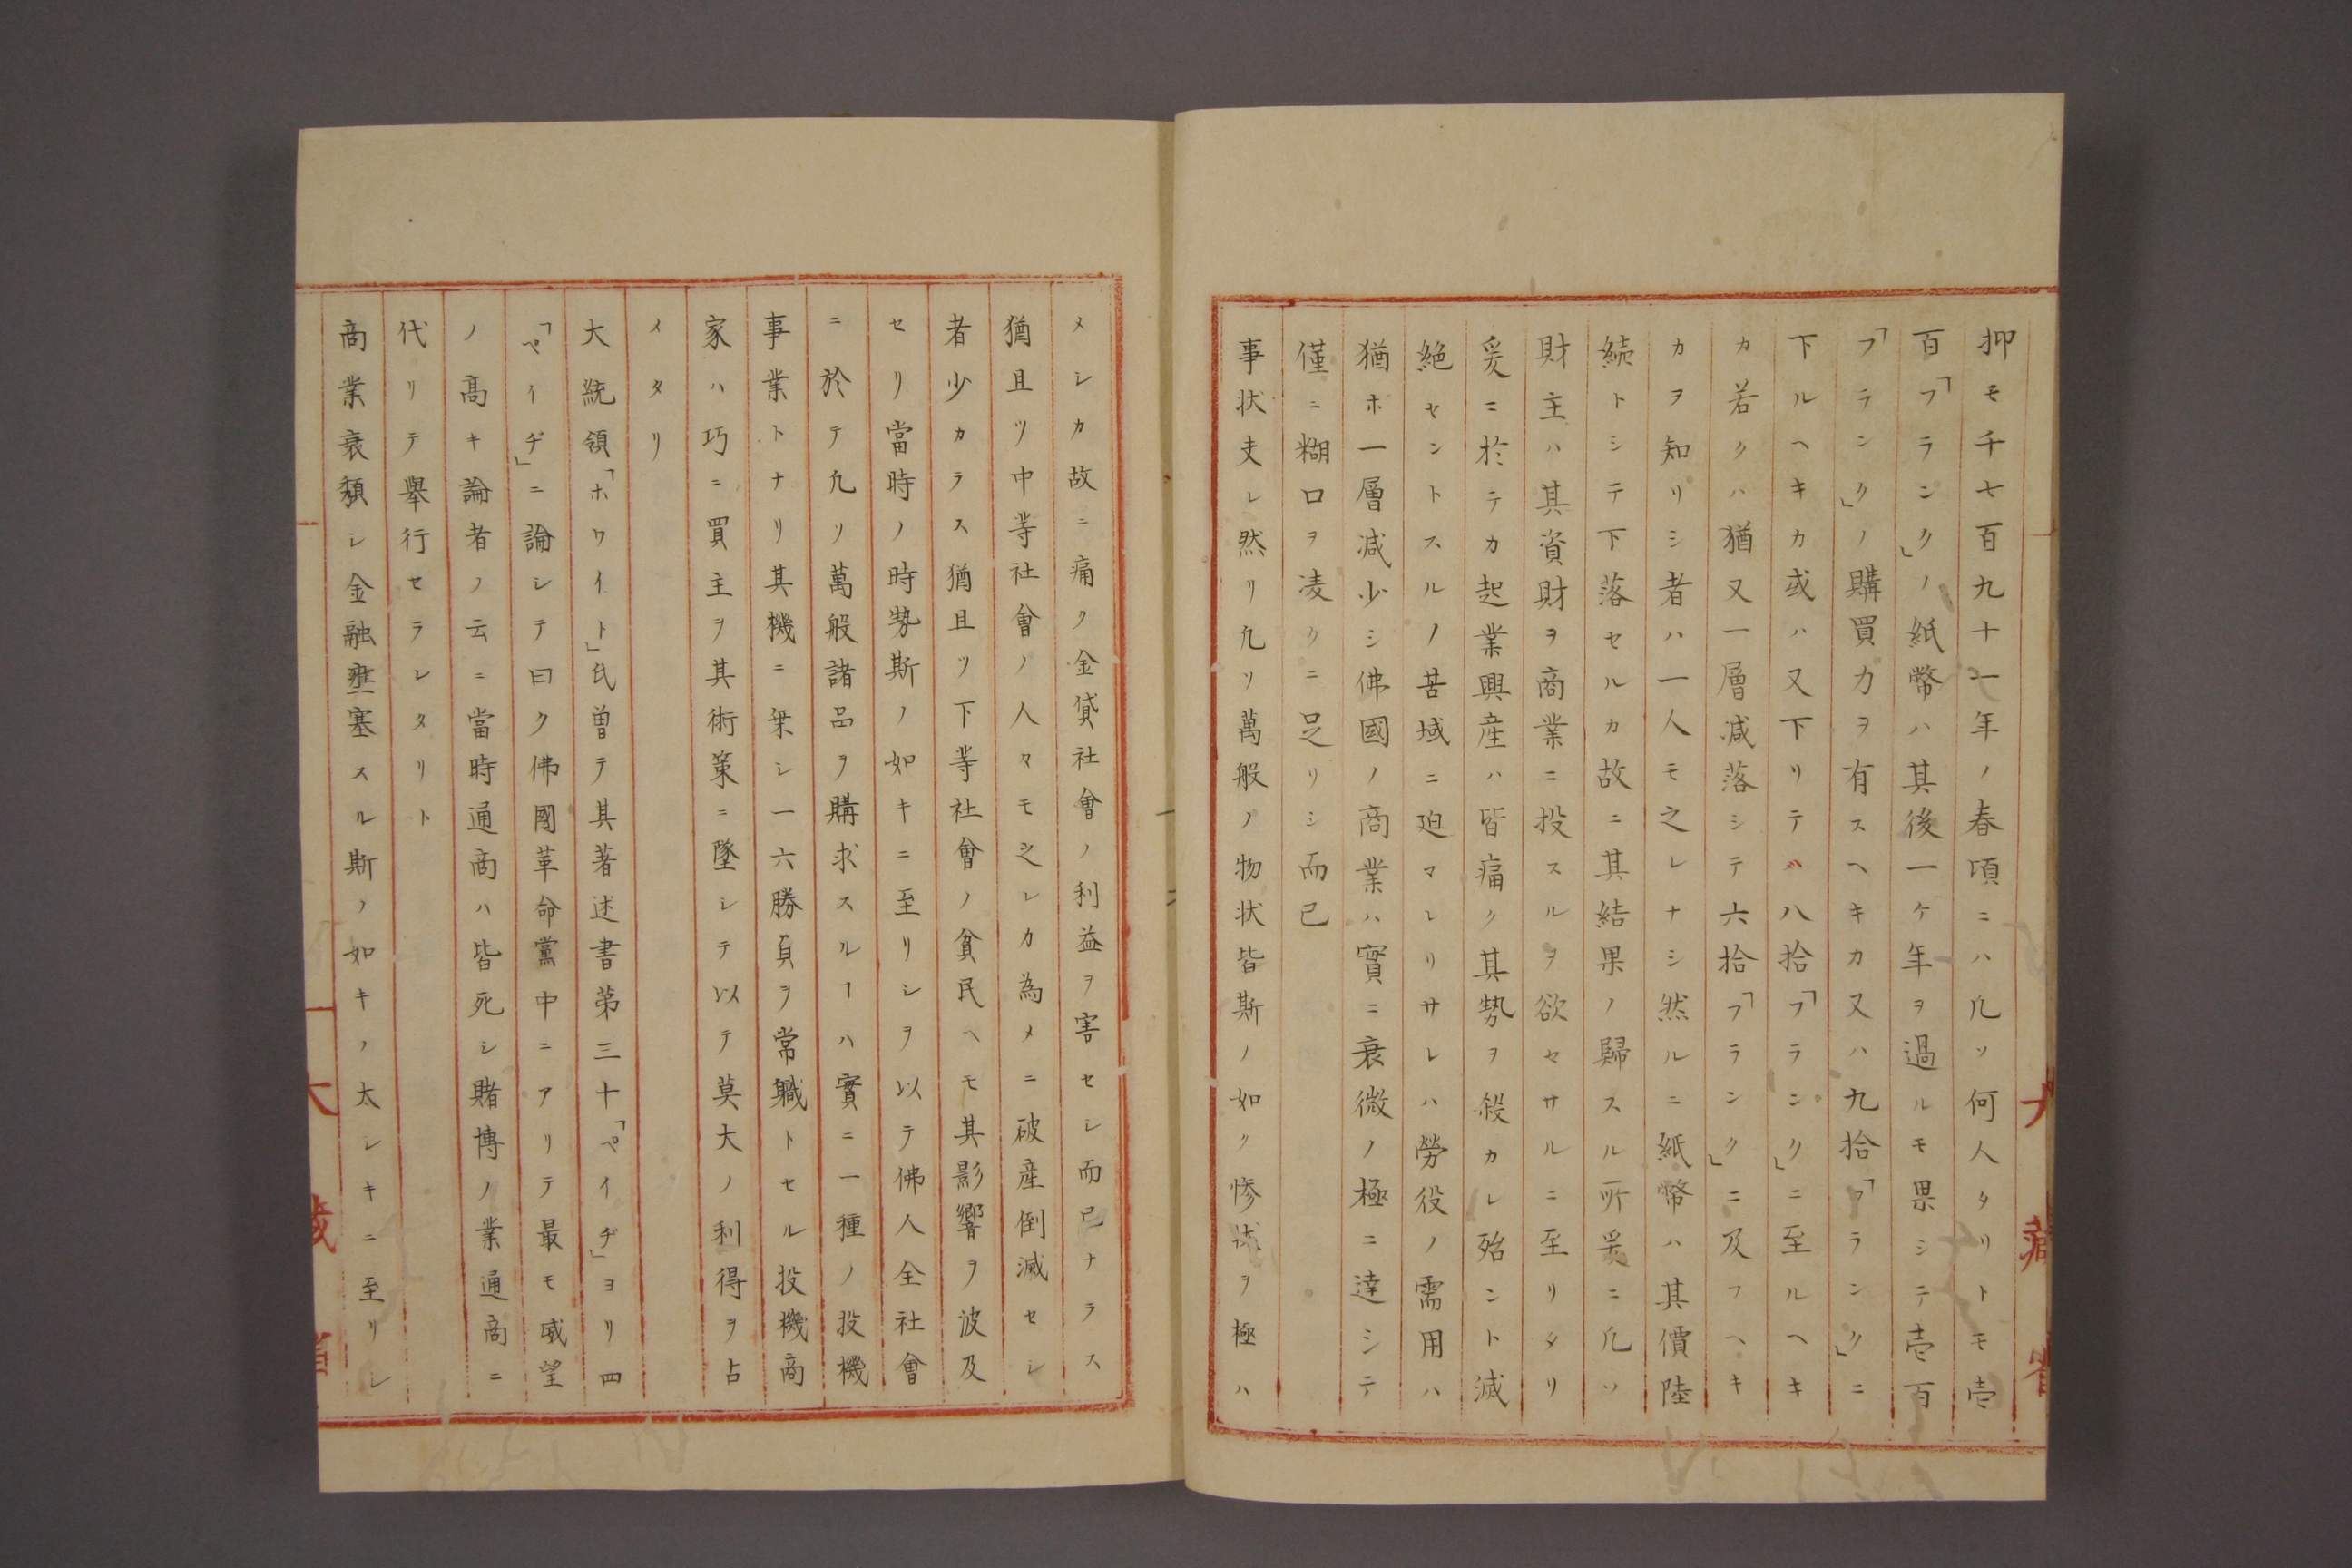 抑モ千七百九十一年ノ春頃ニハ凡ソ何人タリトモ壱
百「フランク」ノ紙幣ハ其後一ケ年ヲ過ルモ果シテ壱百
「フランク」ノ購買力ヲ有スヘキカ又ハ九拾「フランク」ニ
下ルヘキカ或ハ又下リテハ八拾「フランク」ニ至ルヘキ
カ若クハ猶又一層减落シテ六拾「フランク」ニ及フヘキ
カヲ知リシ者ハ一人モ之レナシ然ルニ紙幣ハ其價陸
続トシテ下落セルカ故ニ其結果ノ歸スル所爰ニ凡ソ
財主ハ其資財ヲ商業ニ投スルヲ欲セサルニ至リタリ
爰ニ於テカ起業興産ハ皆痛ク其勢ヲ殺カレ殆ント滅
絶セントスルノ苦域ニ迫マレリサレハ勞役ノ需用ハ
猶ホ一層减少シ佛國ノ商業ハ實ニ衰微ノ極ニ達シテ
僅ニ糊口ヲ凌クニ足リシ而已
事状夫レ然リ凡ソ萬般ノ物状皆斯ノ如ク惨ヲ極ハ
メシカ故ニ痛ク金貸社會ノ利益ヲ害セシ而已ナラス
猶且ツ中等社會ノ人々モ之レカ為メニ破産倒滅セシ
者少カラス猶且ツ下等社會ノ貧民ヘモ其影響ヲ波及
セリ當時ノ時勢斯ノ如キニ至リシヲ以テ佛人全社會
ニ於テ凡ソ萬般諸品ヲ購求スルヿハ實ニ一種ノ投機
事業トナリ其機ニ乗シ一六勝負ヲ常職トセル投機商
家ハ巧ニ買主ヲ其術策ニ墜シテ以テ莫大ノ利得ヲ占
メタリ
大統領「ホワイト」氏曽テ其著述書第三十「ペイヂ」ヨリ四
「ペイヂ」ニ論シテ曰ク佛國革命黨中ニアリテ最モ威望
ノ髙キ論者ノ云ニ當時通商ハ皆死シ賭博ノ業通商ニ
代リテ舉行セラレタリト
商業衰頽シ金融壅塞スル斯ノ如キノ太シキニ至リシ
大藏省